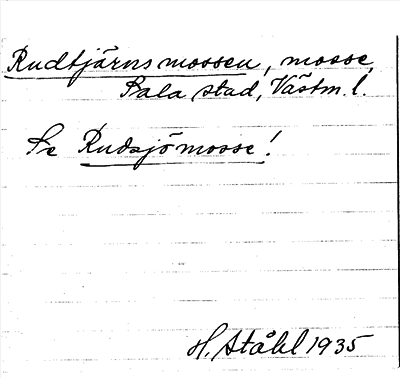 Rudtjärnsmossen, mosse,
Sala stad, Västm. l.
Se Rudsjömosse!
H. Ståhl 1935